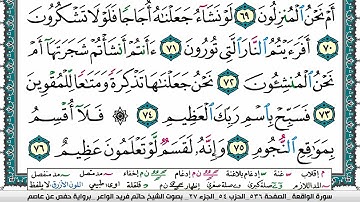 أَمْ نَحْنُ الْمُنزِلُونَ ٦٩ لَوْ نَشَاءُ جَعَلْنَاهُ أُجَاجًا فَلَوْلَا تَشْكُرُونَ
٧٠ أَفَرَءَيْتُمُ النَّارَ الَّتِي تُورُونَ ٧١ ءَأَنتُمْ أَنشَأْتُمْ شَجَرَتَهَا أَمْ
نَحْنُ الْمُنشِـُٔونَ ٧٢ نَحْنُ جَعَلْنَاهَا تَذْكِرَةً وَمَتَاعًا لِّلْمُقْوِينَ
٧٣ فَسَبِّحْ بِاسْمِ رَبِّكَ الْعَظِيمِ ٧٤ فَلَا أُقْسِمُ
بِمَوَاقِعِ النُّجُومِ ٧٥ وَإِنَّهُ لَقَسَمٌ لَّوْ تَعْلَمُونَ عَظِيمٌ ٧٦
سورة الواقعة الصفحة ٥٣٦ الحزب ٥٤ الجزء ٢٧ بصوت الشيخ حاتم فريد الواعر برواية حفص عن عاصم